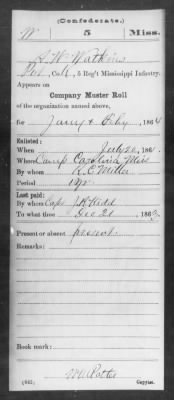 (Confederate.)
W 5 Miss.
A. W. Watkins
Pvt, Co. K, 5 Reg't Mississippi Infantry.
Appears on
Company Muster Roll
of the organization named above,
for Jany & Feby, 1864
Enlisted:
When July 20, 186
Where Camp Carolina Miss
By whom R. C. Miller
Period 1 yr.
Last paid:
By whom Capt
To what time Dec 31, 1863
Present or absent present.
Remarks:
Book mark:
(642) Copyist.